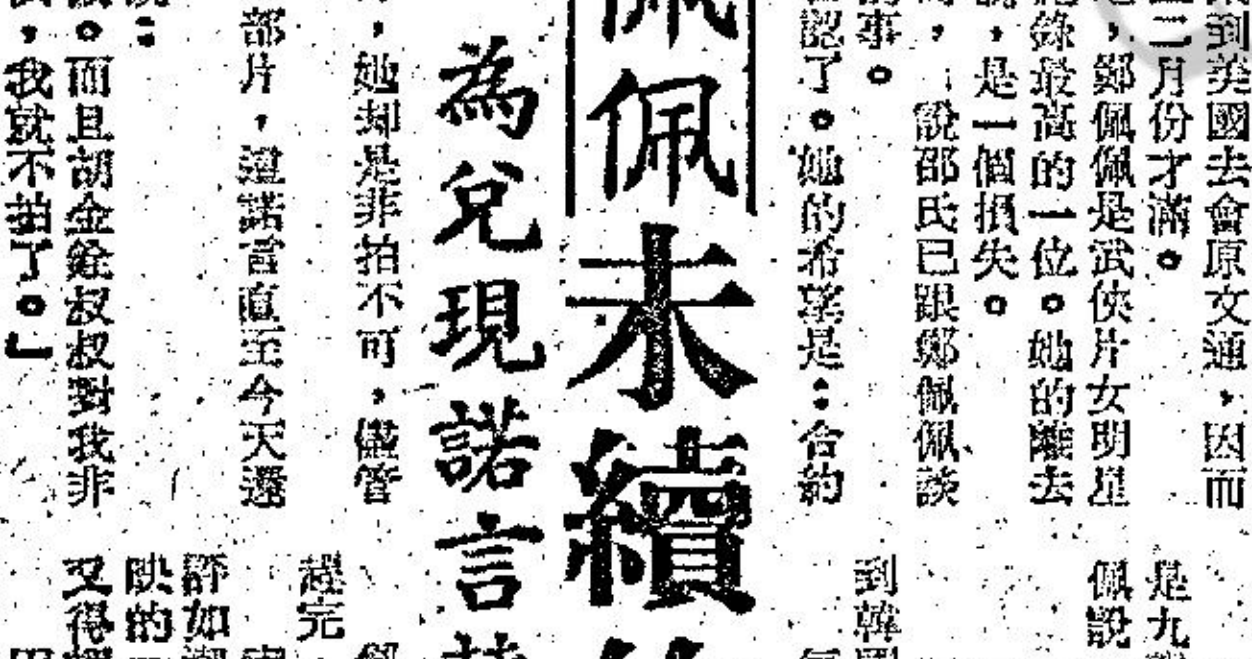 到美國去會原文通，因而
二月份才滿。
，鄭佩佩是武俠片女明星
錄最高的一位。她的離去
，是一個損失。
，說邵氏已跟鄭佩佩談
事。
認了。她的希望是：合約
佩未續
為兌現諾言
，她却是非拍不可，儘管
部片，這諾言直至今天還
：
。而且胡金銓叔叔對我非
，我就不拍了。」
是九
佩說
到韓
趕完
評如
缺的
又得